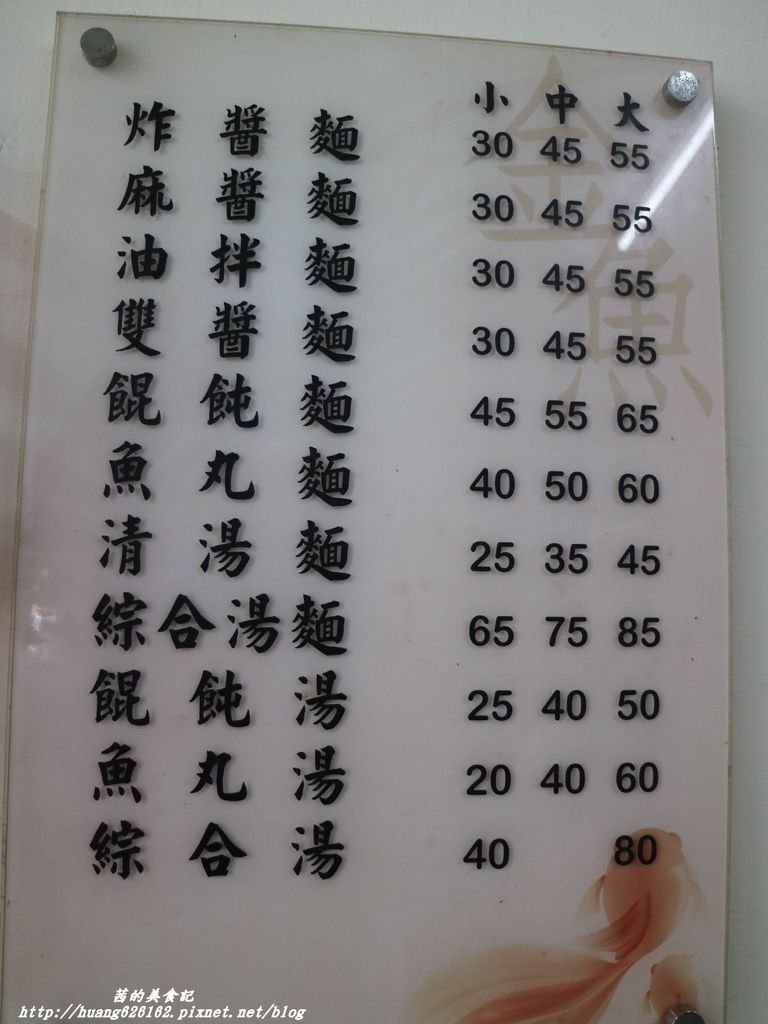 金魚
小 中 大
炸醬麵 30 45 55
麻醬麵 30 45 55
油拌麵 30 45 55
雙醬麵 30 45 55
餛飩麵 45 55 65
魚丸麵 40 50 60
清湯麵 25 35 45
綜合湯麵 65 75 85
餛飩湯 25 40 50
魚丸湯 20 40 60
綜合湯 40 80
茜的美食記
http://huang626162.pixnet.net/blog